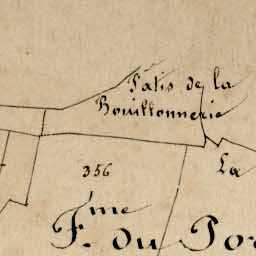 Patis de la
Bouillonnerie
356
La
F.me du Por